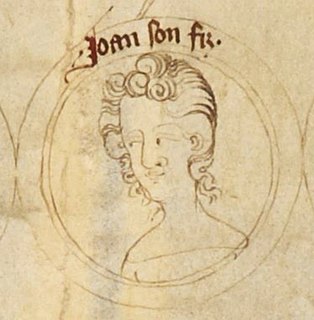 Joan son fiz.